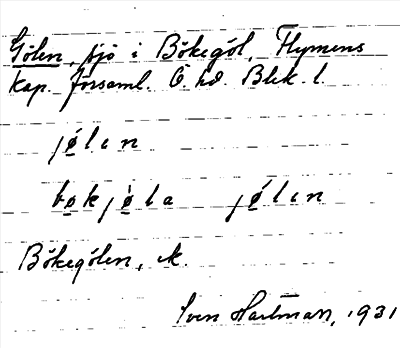 Gölen, sjö i Bökegöl, Flymens
Kap. församl. Ö. hd. Blek. l.
jø̀lɩn
bøkjø̀la jǿlɩn
Bökegölen, ak.
Sven Hartman, 1931